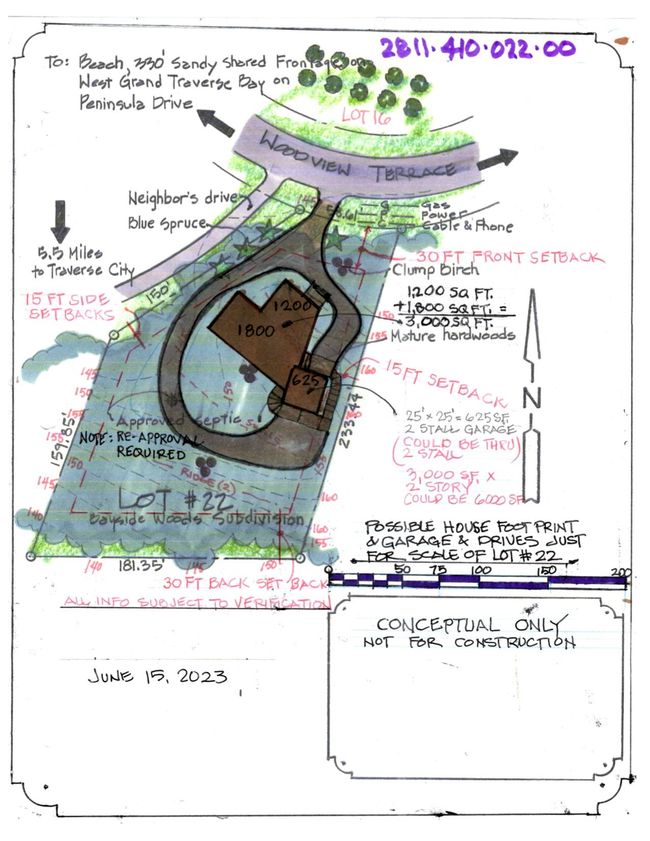 2811·410·022·00
To: Beach, 330' Sandy Shared Frontage on
West Grand Traverse Bay on
Peninsula Drive
LOT 16
WOODVIEW TERRACE
Neighbor's drive
Blue Spruce
145
Gas
Power
Cable & Phone
5.5 Miles
to Traverse City
30 FT FRONT SETBACK
Clump Birch
150'
15 FT SIDE
SETBACKS
1,200 SQ FT.
+1,800 SQ FT. =
3,000 SQ FT.
1200
1800
150
155
Mature hardwoods
15 FT SETBACK
625
160
145
150
150
155
159.85'
233.44
25' x 25' = 625 SF,
2 STALL GARAGE
(COULD BE THRU)
2 STALL
Approved Septic
NOTE: RE-APPROVAL
REQUIRED
155
N
3,000 SF, x
2 STORY
COULD BE 6000 SF
RIDGE (2)
145
LOT #22
Bayside Woods Subdivision
140
155
160
160
155
POSSIBLE HOUSE FOOT PRINT
& GARAGE & DRIVES JUST
FOR SCALE OF LOT #22
140
181.35'
145
150
0 50 75 100 150 200
30 FT BACK SET BACK
ALL INFO SUBJECT TO VERIFICATION
CONCEPTUAL ONLY
NOT FOR CONSTRUCTION
JUNE 15, 2023